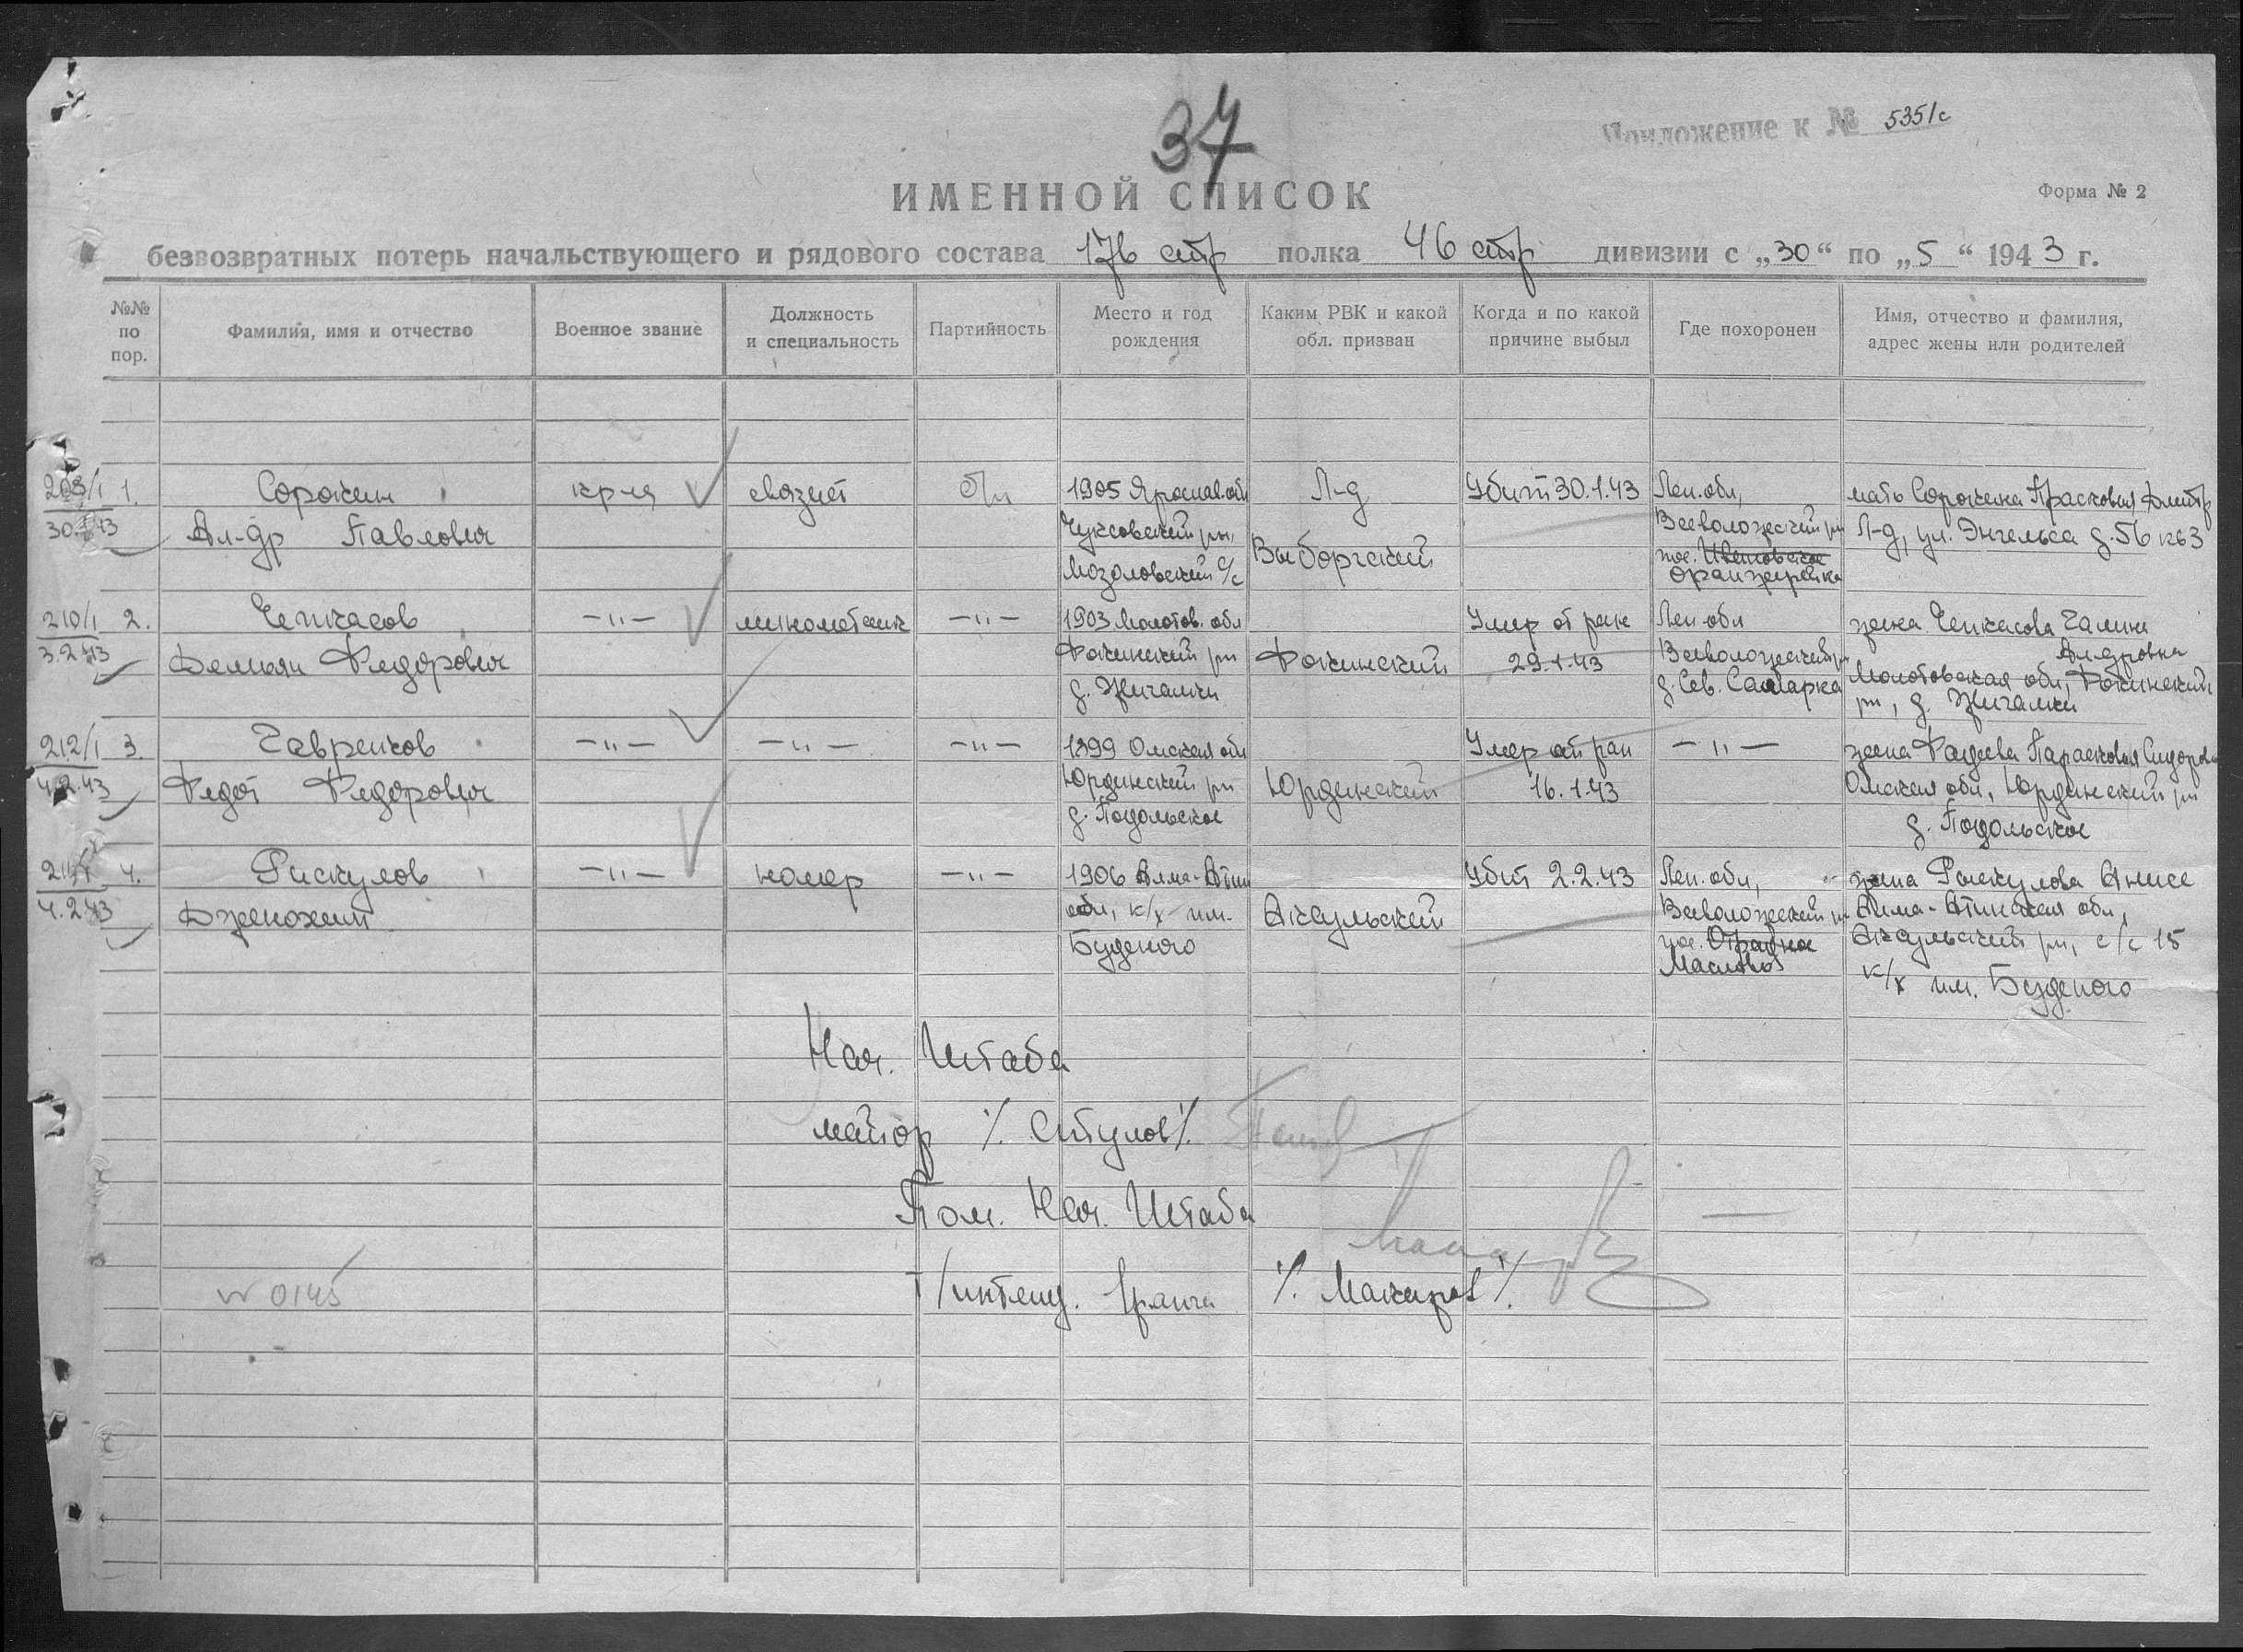 37
Приложение к № 5351с
ИМЕННОЙ СПИСОК
Форма № 2
безвозвратных потерь начальствующего и рядового состава 176 стр полка 46 стр дивизии с „30“ по „5“ 1943 г.
№№ по пор.
Фамилия, имя и отчество
Военное звание
Должность и специальность
Партийность
Место и год рождения
Каким РВК и какой обл. призван
Когда и по какой причине выбыл
Где похоронен
Имя, отчество и фамилия, адрес жены или родителей
1. Сорокин кр-ц связист б/п 1905 Яростав. обл Л-д Убит 30.1.43 Лен. обл, мать Сорокина Прасковья Дмитр
30.1.43 Ал-др Павлович Выборгский Всеволожский рн Л-д, ул. Энгельса д. 56 кв 3
Мозоловский с/с пос.
оранжерейка
210/1 2. Чепкасов -"- минометчик -"- 1903 Молотов. обл Умер от ран Лен. обл жена Чепкасова Галина
3.2.43 Демьян Федорович Фокинский рн Фокинский 29.1.43 Всеволожский рн Ал-дровна
д. Жигалки д. Сев. Самарка Молотовская обл, Фокинский
рн, д. Жигалки
212/1 3. Гавренков -"- -"- -"- 1899 Омская обл Умер от ран -"- жена Фадеева Парасковья Сидоров
4.2.43 Федот Федорович Юрдинский рн Юрдинский 16.1.43 Омская обл, Юрдинский рн
д. Подольское д. Подольское
4. Рискулов -"- номер -"- 1906 Алма-Атин Убит 2.2.43 Лен. обл, жена Рыскулова Анисе
4.2.43 обл, к/х им. Аксульский Всеволожский р Алма-Атинская обл,
Буденого пос. Отрадное Аксульский рн, с/с 15
Маслово к/х им. Буденого
Нач. Штаба
майор /. Ступов/.
Пом. Нач. Штаба
Т/интенд. I ранга /. Макаров/.
0145